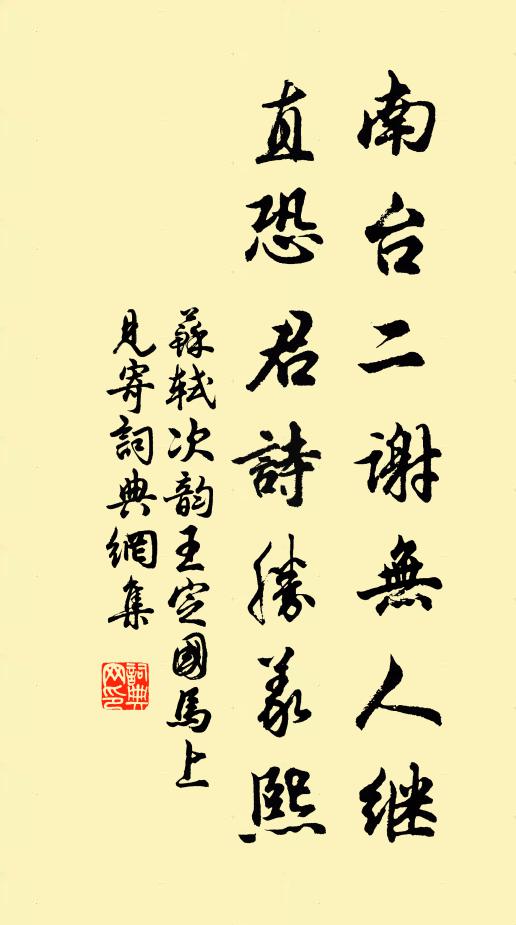 南台二谢無人继
直恐君詩勝義熙
蘇軾次韵王定國馬上
見寄詞典網集
詞典网印